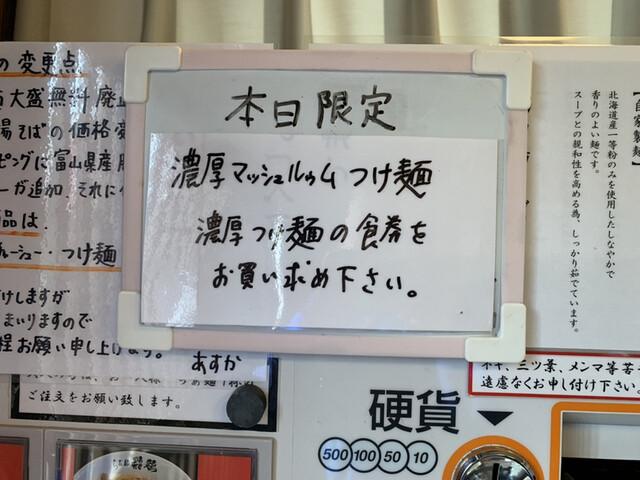 の変更点
大盛無料廃
場そばの価格
ピングに富山県産
ーガ追加、それに
品は、
チャーシュー・つけ麺
けしますが
まいりますので
程お願い申し上げます。
あすか
ご注文をお願い致します。
本日限定
濃厚マッシュルゥムつけ麺
濃厚つけ麺の食券を
お買い求め下さい。
【自家製麺】
北海道産一等粉のみを使用したしなやかで
香りのよい麺です。
スープとの親和性を高める為、しっかり茹でています。
ネギ、三ツ葉、メンマ等苦手
遠慮なくお申し付け下さい。
硬貨
500 100 50 10